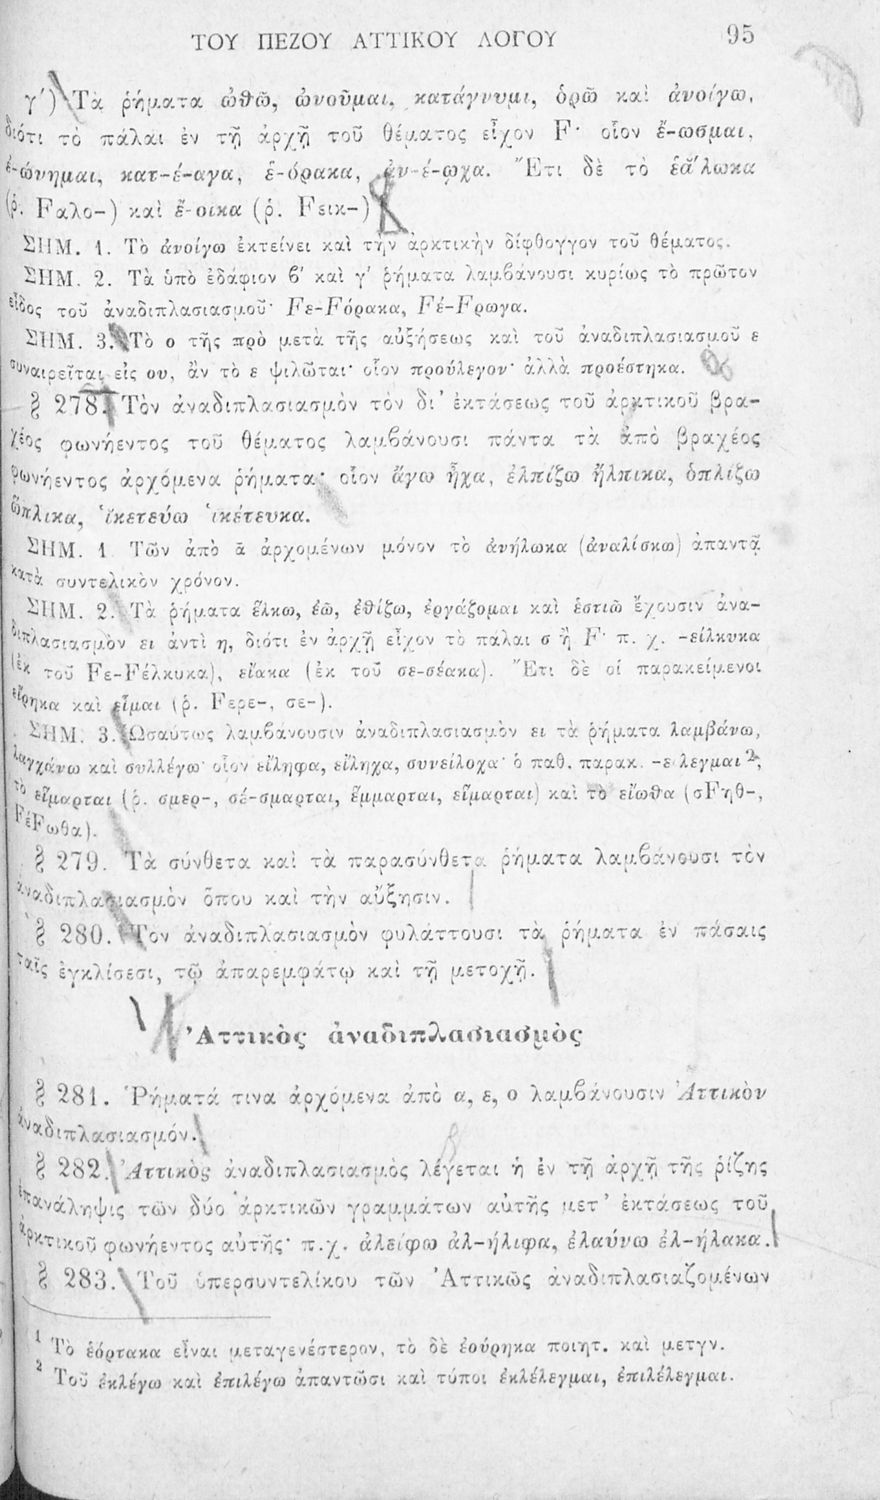 ΤΟΥ ΠΕΖΟΥ ΑΤΤΙΚΟΥ ΛΟΓΟΥ 95
γ΄) Τὰ ῥήματα ὠθῶ, ὠνοῦμαι, κατάγνυμι, ὁρῶ καὶ ἀνοίγω,
διότι τὸ πάλαι ἐν τῇ ἀρχῇ τοῦ θέματος εἶχον F· οἷον ἔ-ωσμαι,
ἐ-ώνημαι, κατ-έ-αγα, ἑ-όρακα, ἀν-έ-ῳχα. Ἔτι δὲ τὸ ἑᾱ́λωκα
(ῥ. Fαλο-) καὶ ἔ-οικα (ῥ. Fεικ-)
ΣΗΜ. 1. Τὸ ἀνοίγω ἐκτείνει καὶ τὴν ἀρκτικὴν δίφθογγον τοῦ θέματος.
ΣΗΜ. 2. Τὰ ὑπὸ ἐδάφιον β΄ καὶ γ΄ ῥήματα λαμβάνουσι κυρίως τὸ πρῶτον
εἶδος τοῦ ἀναδιπλασιασμοῦ· Fε-Fόρακα, Fέ-Fρωγα.
ΣΗΜ. 3. Τὸ ο τῆς πρὸ μετὰ τῆς αὐξήσεως καὶ τοῦ ἀναδιπλασιασμοῦ ε
συναιρεῖται εἰς ου, ἂν τὸ ε ψιλῶται· οἷον προύλεγον· ἀλλὰ προέστηκα.
§ 278. Τὸν ἀναδιπλασιασμὸν τὸν δι᾽ ἐκτάσεως τοῦ ἀρκτικοῦ βρα-
χέος φωνήεντος τοῦ θέματος λαμβάνουσι πάντα τὰ ἀπὸ βραχέος
φωνήεντος ἀρχόμενα ῥήματα· οἷον ἄγω ἦχα, ἐλπίζω ἤλπικα, ὁπλίζω
ὥπλικα, ἱκετεύω ἱκέτευκα.
ΣΗΜ. 1 Τῶν ἀπὸ ᾱ ἀρχομένων μόνον τὸ ἀνήλωκα (ἀναλίσκω) ἀπαντᾷ
κατὰ συντελικὸν χρόνον.
ΣΗΜ. 2. Τὰ ῥήματα ἕλκω, ἐῶ, ἐθίζω, ἐργάζομαι καὶ ἑστιῶ ἔχουσιν ἀνα-
διπλασιασμὸν ει ἀντὶ η, διότι ἐν ἀρχῇ εἶχον τὸ πάλαι σ ἢ F· π. χ. -είλκυκα
(ἐκ τοῦ Fε-Fέλκυκα), εἴακα (ἐκ τοῦ σε-σέακα). Ἔτι δὲ οἱ παρακείμενοι
εἴρηκα καὶ εἷμαι (ῥ. Fερε-, σε-).
ΣΗΜ. 3. Ὡσαύτως λαμβάνουσιν ἀναδιπλασιασμὸν ει τὰ ῥήματα λαμβάνω,
λαγχάνω καὶ συλλέγω· οἷον εἴληφα, εἴληχα, συνείλοχα· ὁ παθ. παρακ. -είλεγμαι²,
τὸ εἵμαρται (ῥ. σμερ-, σέ-σμαρται, ἕμμαρται, εἵμαρται) καὶ τὸ εἴωθα (σFηθ-,
FέFωθα).
§ 279. Τὰ σύνθετα καὶ τὰ παρασύνθετα ῥήματα λαμβάνουσι τὸν
ἀναδιπλασιασμὸν ὅπου καὶ τὴν αὔξησιν.
§ 280. Τὸν ἀναδιπλασιασμὸν φυλάττουσι τὰ ῥήματα ἐν πάσαις
ταῖς ἐγκλίσεσι, τῷ ἀπαρεμφάτῳ καὶ τῇ μετοχῇ.
Ἀττικὸς ἀναδιπλασιασμὸς
§ 281. Ῥήματά τινα ἀρχόμενα ἀπὸ α, ε, ο λαμβάνουσιν Ἀττικὸν
ἀναδιπλασιασμόν.
§ 282. Ἀττικὸς ἀναδιπλασιασμὸς λέγεται ἡ ἐν τῇ ἀρχῇ τῆς ῥίζης
ἐπανάληψις τῶν δύο ἀρκτικῶν γραμμάτων αὐτῆς μετ᾽ ἐκτάσεως τοῦ
ἀρκτικοῦ φωνήεντος αὐτῆς· π.χ. ἀλείφω ἀλ-ήλιφα, ἐλαύνω ἐλ-ήλακα.
§ 283. Τοῦ ὑπερσυντελίκου τῶν Ἀττικῶς ἀναδιπλασιαζομένων
1 Τὸ ἑόρτακα εἶναι μεταγενέστερον, τὸ δὲ ἐούρηκα ποιητ. καὶ μετγν.
2 Τοῦ ἐκλέγω καὶ ἐπιλέγω ἀπαντῶσι καὶ τύποι ἐκλέλεγμαι, ἐπιλέλεγμαι.